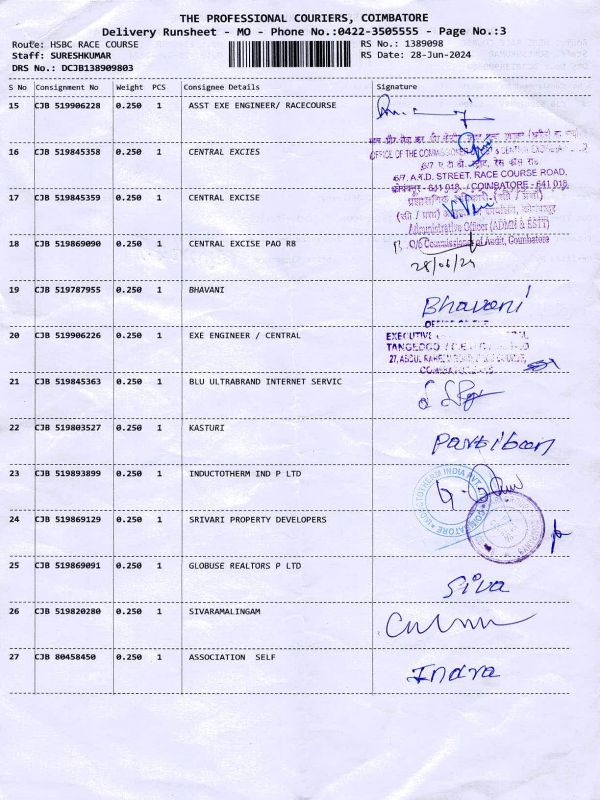 THE PROFESSIONAL COURIERS, COIMBATORE
Delivery Runsheet - MO - Phone No.:0422-3505555 - Page No.:3
Route: HSBC RACE COURSE RS No.: 1389098
Staff: SURESHKUMAR RS Date: 28-Jun-2024
DRS No.: DCJB138909803
S No Consignment No Weight PCS Consignee Details Signature
15 CJB 519906228 0.250 1 ASST EXE ENGINEER/ RACECOURSE
16 CJB 519845358 0.250 1 CENTRAL EXCIES
OFFICE OF THE COMMISSIONER
6/7, A.T.D. STREET, RACE COURSE ROAD,
17 CJB 519845359 0.250 1 CENTRAL EXCISE
कोयंबत्तूर - 641 018. / COIMBATORE - 641 018.
Administrative Officer (ADMN & ESTT)
18 CJB 519869090 0.250 1 CENTRAL EXCISE PAO R8
O/o Commissioner of Audit, Coimbatore
28/06/24
19 CJB 519787955 0.250 1 BHAVANI
Bhavani
20 CJB 519906226 0.250 1 EXE ENGINEER / CENTRAL
EXECUTIVE
TANGEDCO
21 CJB 519845363 0.250 1 BLU ULTRABRAND INTERNET SERVIC
22 CJB 519803527 0.250 1 KASTURI
Parthiban
23 CJB 519893899 0.250 1 INDUCTOTHERM IND P LTD
INDUCTOTHERM INDIA PVT
COIMBATORE
24 CJB 519869129 0.250 1 SRIVARI PROPERTY DEVELOPERS
25 CJB 519869091 0.250 1 GLOBUSE REALTORS P LTD
Siva
26 CJB 519820280 0.250 1 SIVARAMALINGAM
27 CJB 80458450 0.250 1 ASSOCIATION SELF
Indra